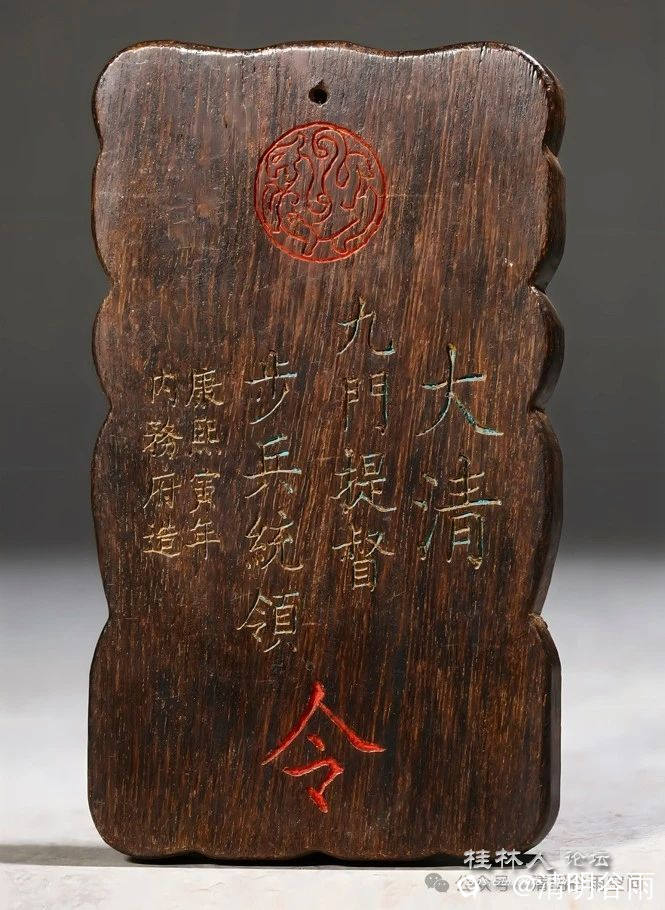 大清
九門提督
步兵統領
康熙寅年
内務府造
令
桂林人论坛
公众号
@清明谷雨